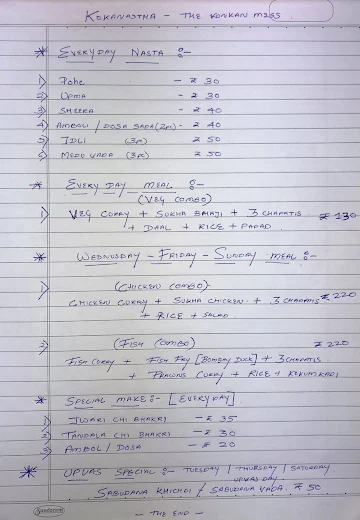 KOKANASTHA - THE KONKAN MESS
* EVERYDAY NASTA :-
1) POHE - ₹ 30
2) UPMA - ₹ 30
3) SHEERA - ₹ 40
4) AMBOLI / DOSA SADA (2pc) - ₹ 40
5) IDLI (3pc) ₹ 50
6) MEDU VADA (3pc) ₹ 50
* EVERY DAY MEAL :-
(VEG COMBO)
1) VEG CURRY + SUKHA BHAJI + 3 CHAPATIS ₹ 130
+ DAAL + RICE + PAPAD
* WEDNUSDAY - FRIDAY - SUNDAY MEAL :-
1) (CHICKEN COMBO)
CHICKEN CURRY + SUKHA CHICKEN + 3 CHAPATIS ₹ 220
+ RICE + SALAD
2) (FISH COMBO) ₹ 220
FISH CURRY + FISH FRY [BOMBAY DUCK] + 3 CHAPATIS
+ PRAWNS CURRY + RICE + KOKUM KADI
* SPECIAL MAKE :- [EVERYDAY]
1) JWARI CHI BHAKRI - ₹ 35
2) TANDALA CHI BHAKRI - ₹ 30
3) AMBOLI / DOSA - ₹ 20
* UPVAS SPECIAL :- TUESDAY / THURSDAY / SATURDAY
UPVAS DAY
SABUDANA KHICHDI / SABUDANA VADA ₹ 50
- THE END -
Sundaram